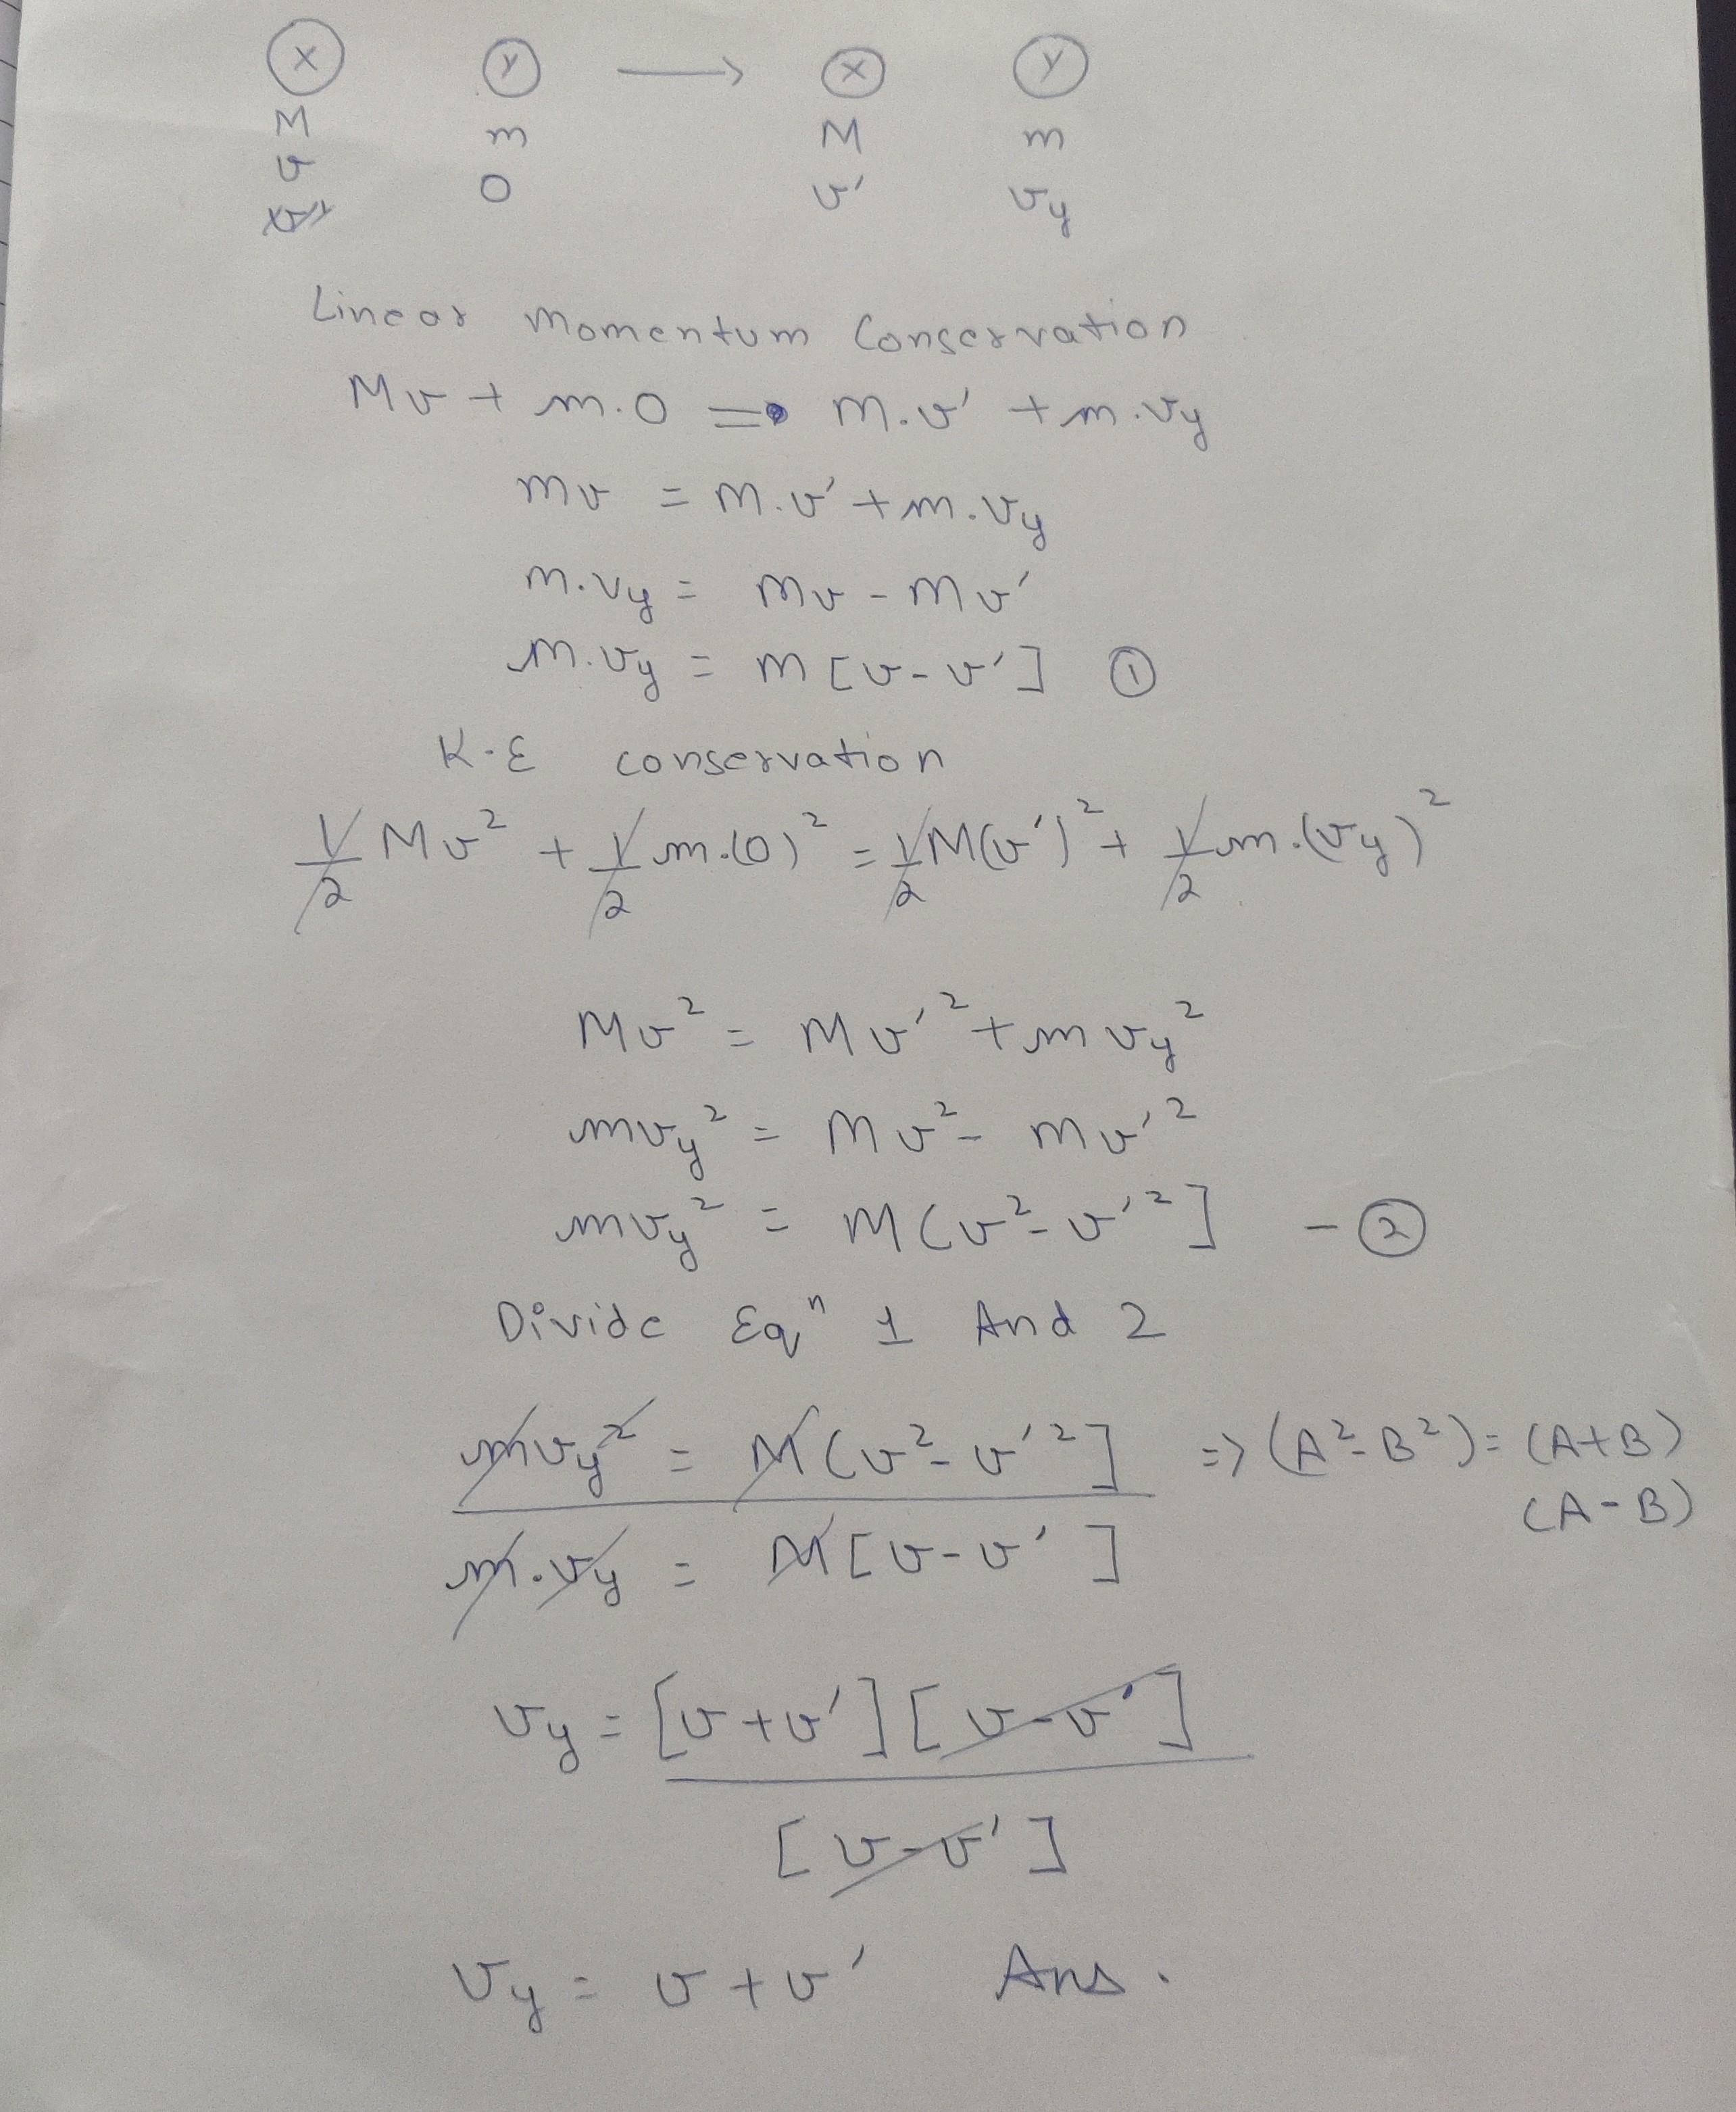 X Y → X Y
M m M m
v 0 v' vy
Linear Momentum Conservation
Mv + m.0 = M.v' + m.vy
Mv = M.v' + m.vy
m.vy = Mv - Mv'
m.vy = M[v-v'] ①
K.E conservation
1/2 Mv² + 1/2 m.(0)² = 1/2 M(v')² + 1/2 m.(vy)²
Mv² = Mv'² + mvy²
mvy² = Mv² - Mv'²
mvy² = M(v²-v'²] - ②
Divide Eqⁿ 1 And 2
mvy² = M(v²-v'²] => (A²-B²) = (A+B)
(A-B)
m.vy = M[v-v']
vy = [v+v'][v-v']
[v-v']
vy = v+v' Ans.